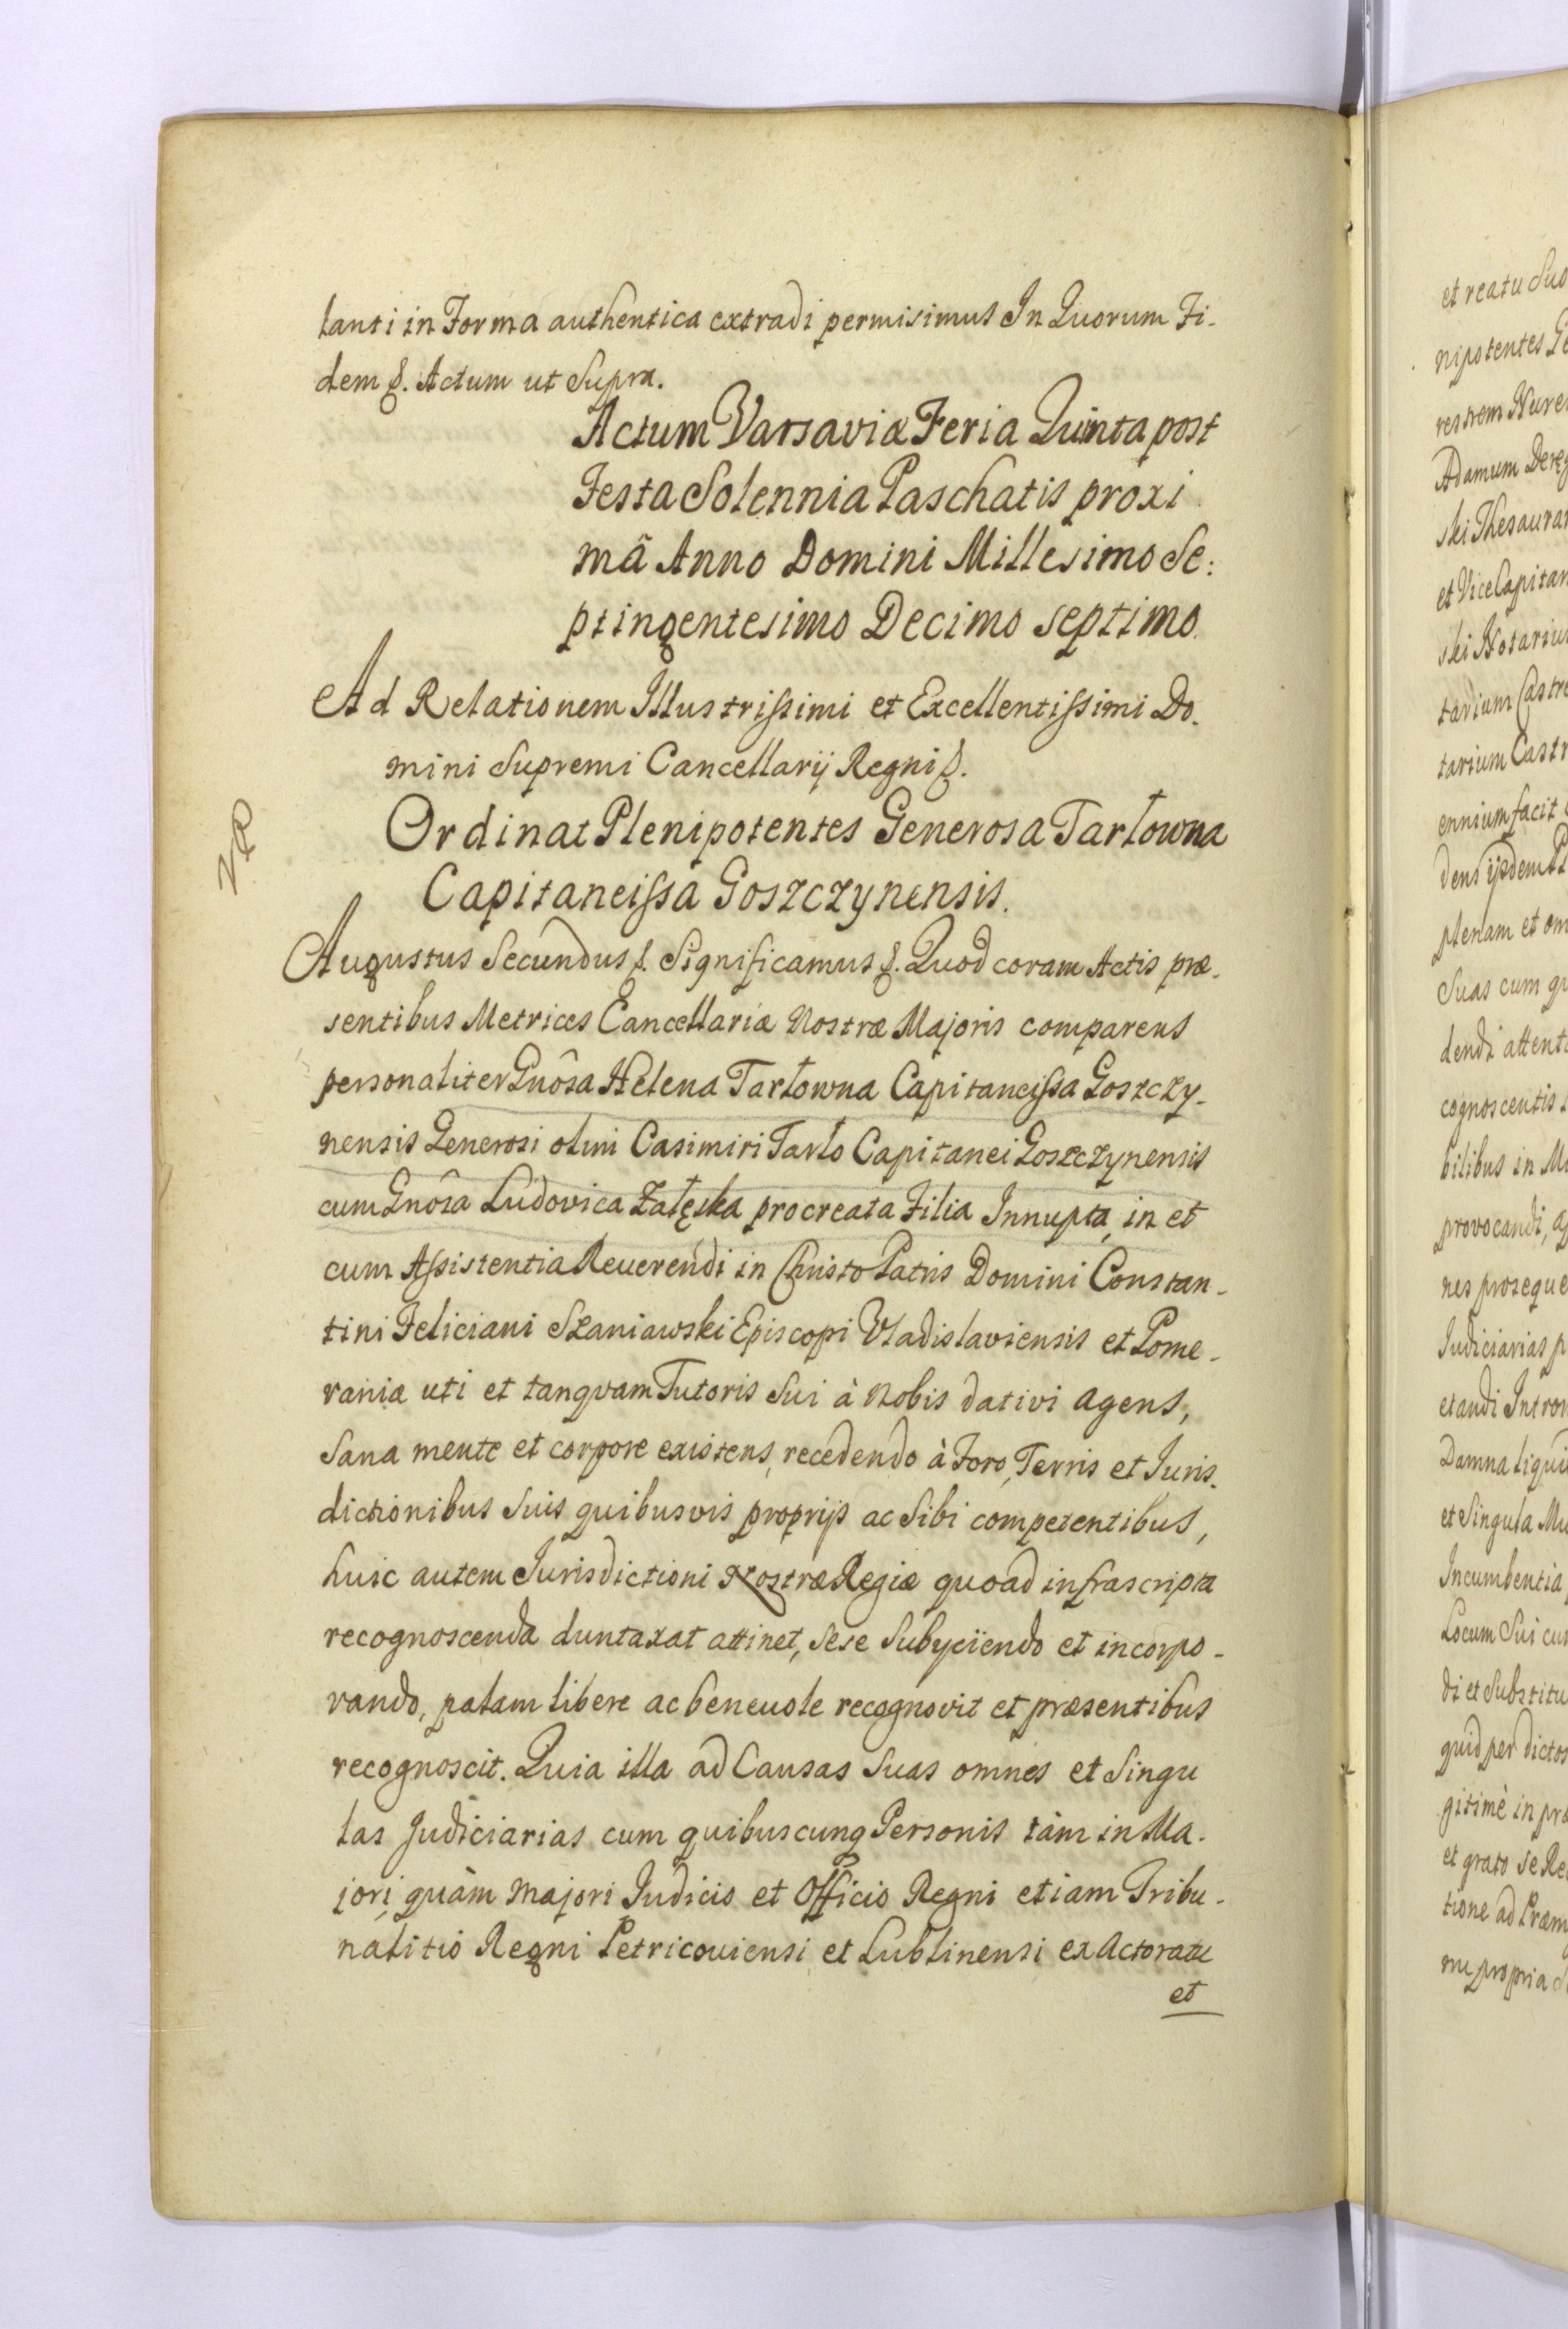 lanti in Forma authentica extradi permisimus In Quorum Fi-
dem &. Actum ut Supra.
Actum Varsaviæ Feria Quinta post
Festa Solennia Paschatis proxi
mâ Anno Domini Millesimo Se:
ptingentesimo Decimo septimo.
Ad Relationem Illustrissimi et Excellentissimi Do-
mini Supremi Cancellarij Regni &.
Ordinat Plenipotentes Generosa Tarłowna
Capitaneissa Goszczynensis.
Augustus Secundus &. Significamus &. Quod coram Actis præ-
sentibus Metrices Cancellariæ Nostræ Majoris comparens
personaliter Gnôsa Helena Tarłowna Capitaneissa Goszczy-
nensis Generosi olim Casimiri Tarło Capitanei Goszczynensis
cum Gnôsa Ludovica Załęska procreata Filia Innupta, in et
cum Assistentia Reuerendi in Christo Patris Domini Constan-
tini Feliciani Szaniawski Episcopi Vladislaviensis et Pome-
raniæ uti et tanqvam Tutoris Sui à Nobis dativi agens,
Sana mente et corpore existens, recedendo à Foro, Terris et Juris-
dictionibus Suis quibusvis proprijs ac Sibi competentibus,
huic autem Jurisdictioni Nostræ Regiæ quoad infrascripta
recognoscenda duntaxat attinet, sese Subyciendo et incorpo-
rando, palam libere ac beneuole recognovit et præsentibus
recognoscit. Quia illa ad Causas Suas omnes et Singu
las Judiciarias cum quibuscunq Personis tàm in Ma-
jori, quàm Majori Judicio et Officio Regni etiam Tribu-
nalitio Regni Petricouiensi et Lublinensi ex Actoratu
et
et reatu Suo
nipotentes Ge
restrem Nure
Adamum
ski Thesaurar
et ViceCapitan
ski Notarium
tarium Castre
tarium Castr
ennium facit
dens ijsdem Pl
plenam et om
Suas cum qu
dendi attenta
cognoscentis
bilibus in Ma
provocandi, a
nes proseque
Judiciarias p
etandi Introm
Damna liqui
et Singula Mu
Incumbentia
Locum Sui cum
di et Substitu
quid per dictos
gitimè in præ
et grato se Re
tione ad Præm
propria